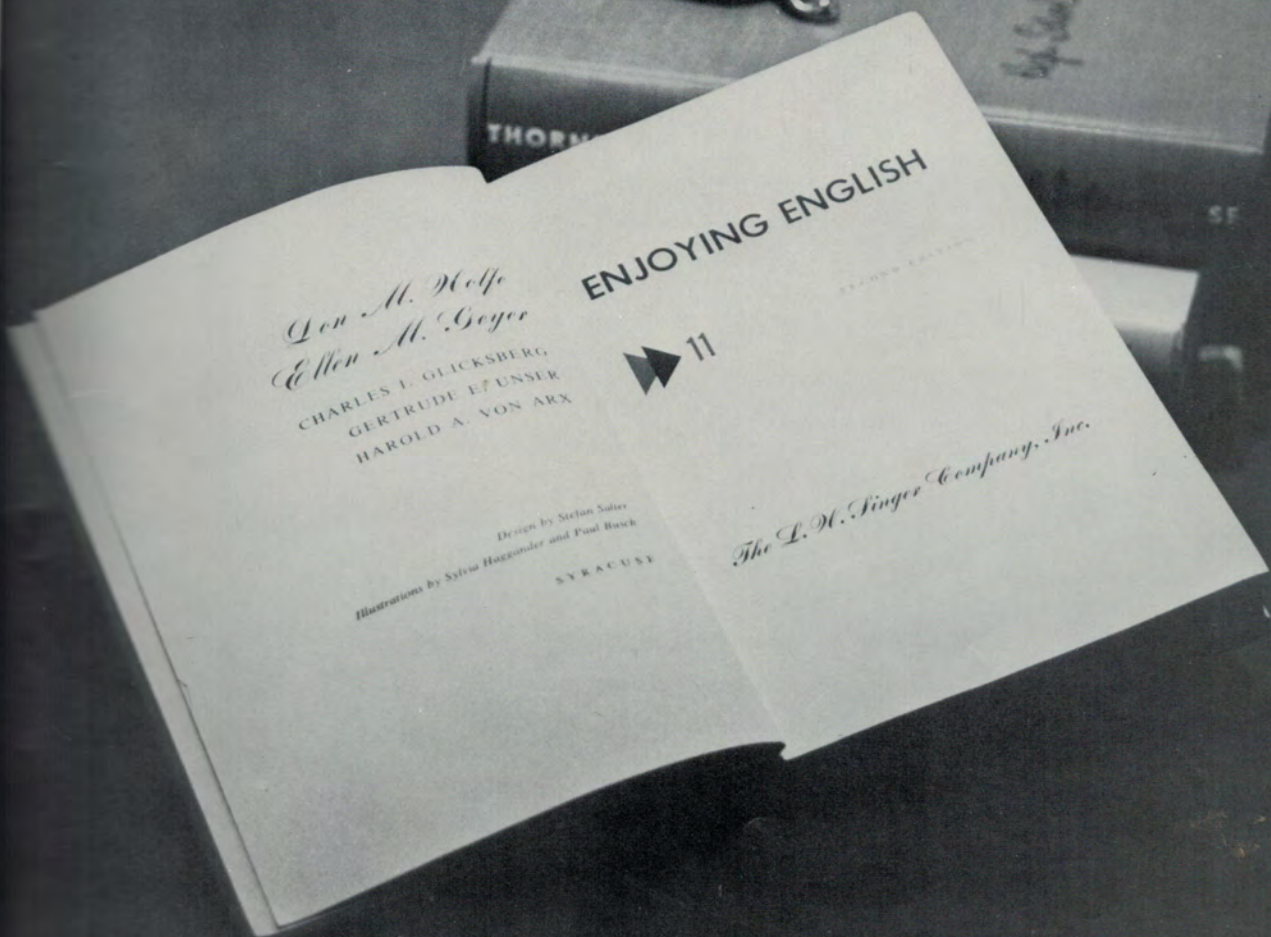 THORN
SF
Don M. Wolfe
Ellen M. Geyer
CHARLES I. GLICKSBERG
GERTRUDE E. UNSER
HAROLD A. VON ARX
Design by Stefan Salter
Illustrations by Sylvia Haggander and Paul Busch
SYRACUSE
ENJOYING ENGLISH
SECOND EDITION
11
The L. W. Singer Company, Inc.